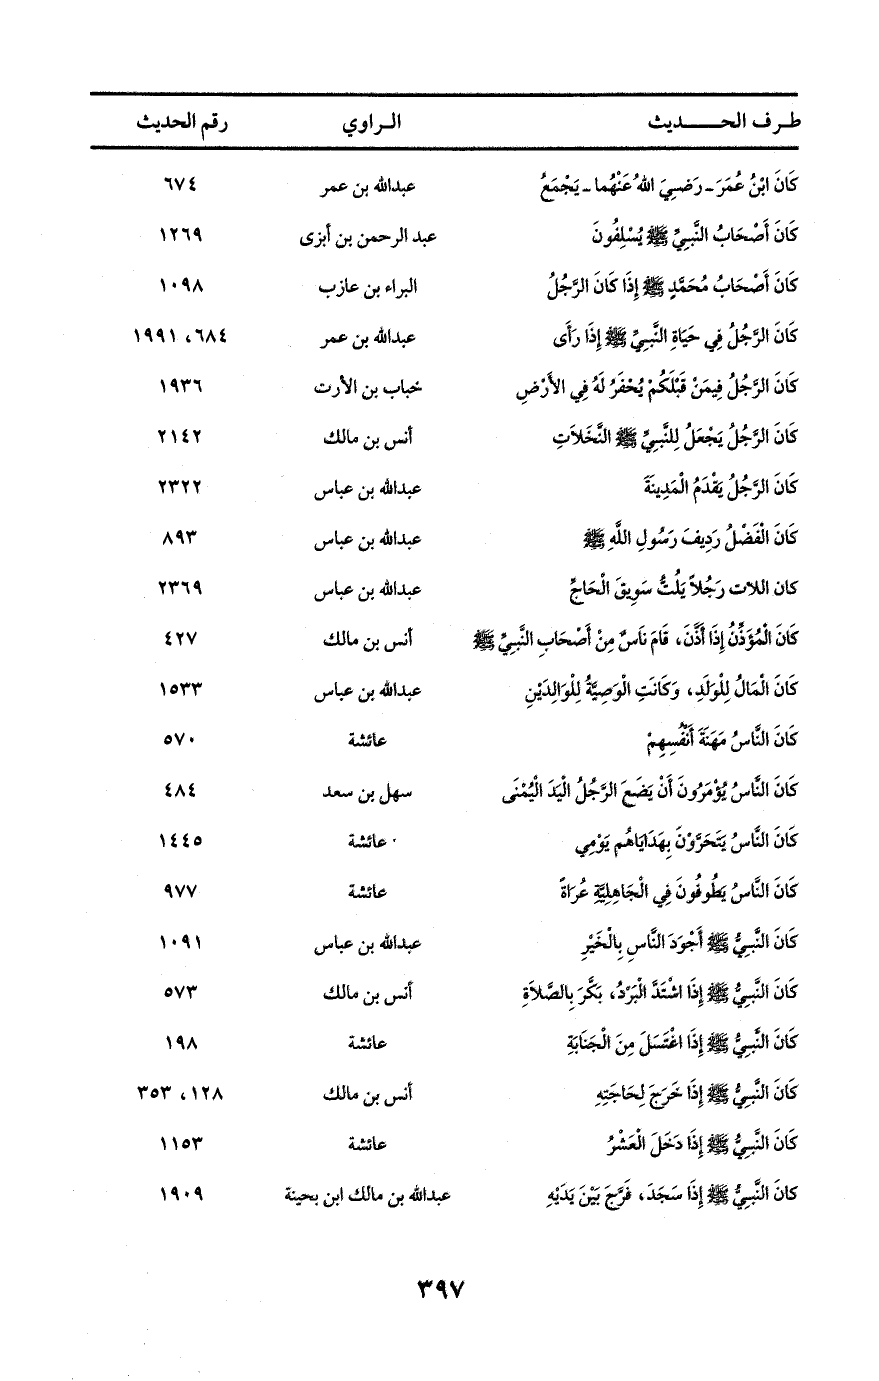 طـرف الحـــــديث الـراوي رقم الحديث
كَانَ ابْنُ عُمَرَ ـ رَضِيَ اللهُ عَنْهُما ـ يَجْمَعُ عبدالله بن عمر ٦٧٤
كَانَ أَصْحَابُ النَّبِيِّ ﷺ يُسْلِفُونَ عبد الرحمن بن أبزى ١٢٦٩
كَانَ أَصْحَابُ مُحَمَّدٍ ﷺ إِذَا كَانَ الرَّجُلُ البراء بن عازب ١٠٩٨
كَانَ الرَّجُلُ فِي حَيَاةِ النَّبِيِّ ﷺ إِذَا رَأَى عبدالله بن عمر ٦٨٤، ١٩٩١
كَانَ الرَّجُلُ فِيمَنْ قَبْلَكُمْ يُحْفَرُ لَهُ فِي الأَرْضِ خباب بن الأرت ١٩٣٦
كَانَ الرَّجُلُ يَجْعَلُ لِلنَّبِيِّ ﷺ النَّخَلاَتِ أنس بن مالك ٢١٤٢
كَانَ الرَّجُلُ يَقْدَمُ الْمَدِينَةَ عبدالله بن عباس ٢٣٢٢
كَانَ الْفَضْلُ رَدِيفَ رَسُولِ اللَّهِ ﷺ عبدالله بن عباس ٨٩٣
كان اللات رَجُلاً يَلُتُّ سَوِيقَ الْحَاجِّ عبدالله بن عباس ٢٣٦٩
كَانَ الْمُؤَذِّنُ إِذَا أَذَّنَ، قَامَ نَاسٌ مِنْ أَصْحَابِ النَّبِيِّ ﷺ أنس بن مالك ٤٢٧
كَانَ الْمَالُ لِلْوَلَدِ، وَكَانَتِ الْوَصِيَّةُ لِلْوَالِدَيْنِ عبدالله بن عباس ١٥٣٣
كَانَ النَّاسُ مَهَنَةَ أَنْفُسِهِمْ عائشة ٥٧٠
كَانَ النَّاسُ يُؤْمَرُونَ أَنْ يَضَعَ الرَّجُلُ الْيَدَ الْيُمْنَى سهل بن سعد ٤٨٤
كَانَ النَّاسُ يَتَحَرَّوْنَ بِهَدَايَاهُم يَوْمِي عائشة ١٤٤٥
كَانَ النَّاسُ يَطُوفُونَ فِي الْجَاهِلِيَّةِ عُرَاةً عائشة ٩٧٧
كَانَ النَّبِيُّ ﷺ أَجْوَدَ النَّاسِ بِالْخَيْرِ عبدالله بن عباس ١٠٩١
كَانَ النَّبِيُّ ﷺ إِذَا اشْتَدَّ الْبَرْدُ، بَكَّرَ بِالصَّلاَةِ أنس بن مالك ٥٧٣
كَانَ النَّبِيُّ ﷺ إِذَا اغْتَسَلَ مِنَ الْجَنَابَةِ عائشة ١٩٨
كَانَ النَّبِيُّ ﷺ إِذَا خَرَجَ لِحَاجَتِهِ أنس بن مالك ١٢٨، ٣٥٣
كَانَ النَّبِيُّ ﷺ إِذَا دَخَلَ الْعَشْرُ عائشة ١١٥٣
كانَ النَّبِيُّ ﷺ إِذَا سَجَدَ، فَرَّجَ بَيْنَ يَدَيْهِ عبدالله بن مالك ابن بحينة ١٩٠٩
٣٩٧